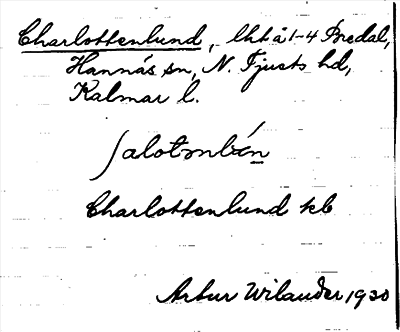 Charlottenlund, lht å 1-4 Bredal,
Hannäs sn, N. Tjusts hd,
Kalmar l.
Charlottenlund kb
Artur Wilander, 1930